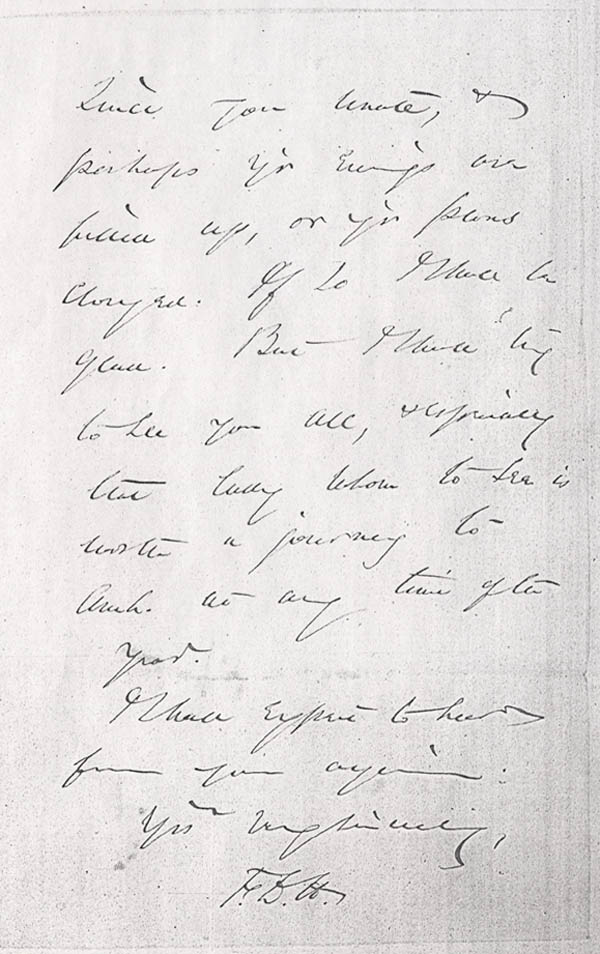 Since you wrote, &
perhaps yr evenings are
filled up, or yr plans
changed. If so I shall be
glad. But I shall try
to see you all, & especially
the lady whom to see is
worth a journey to
Amh. at any time of the
year.
I shall expect to hear
from you again:
Yrs very sincerely,
F.D.H.